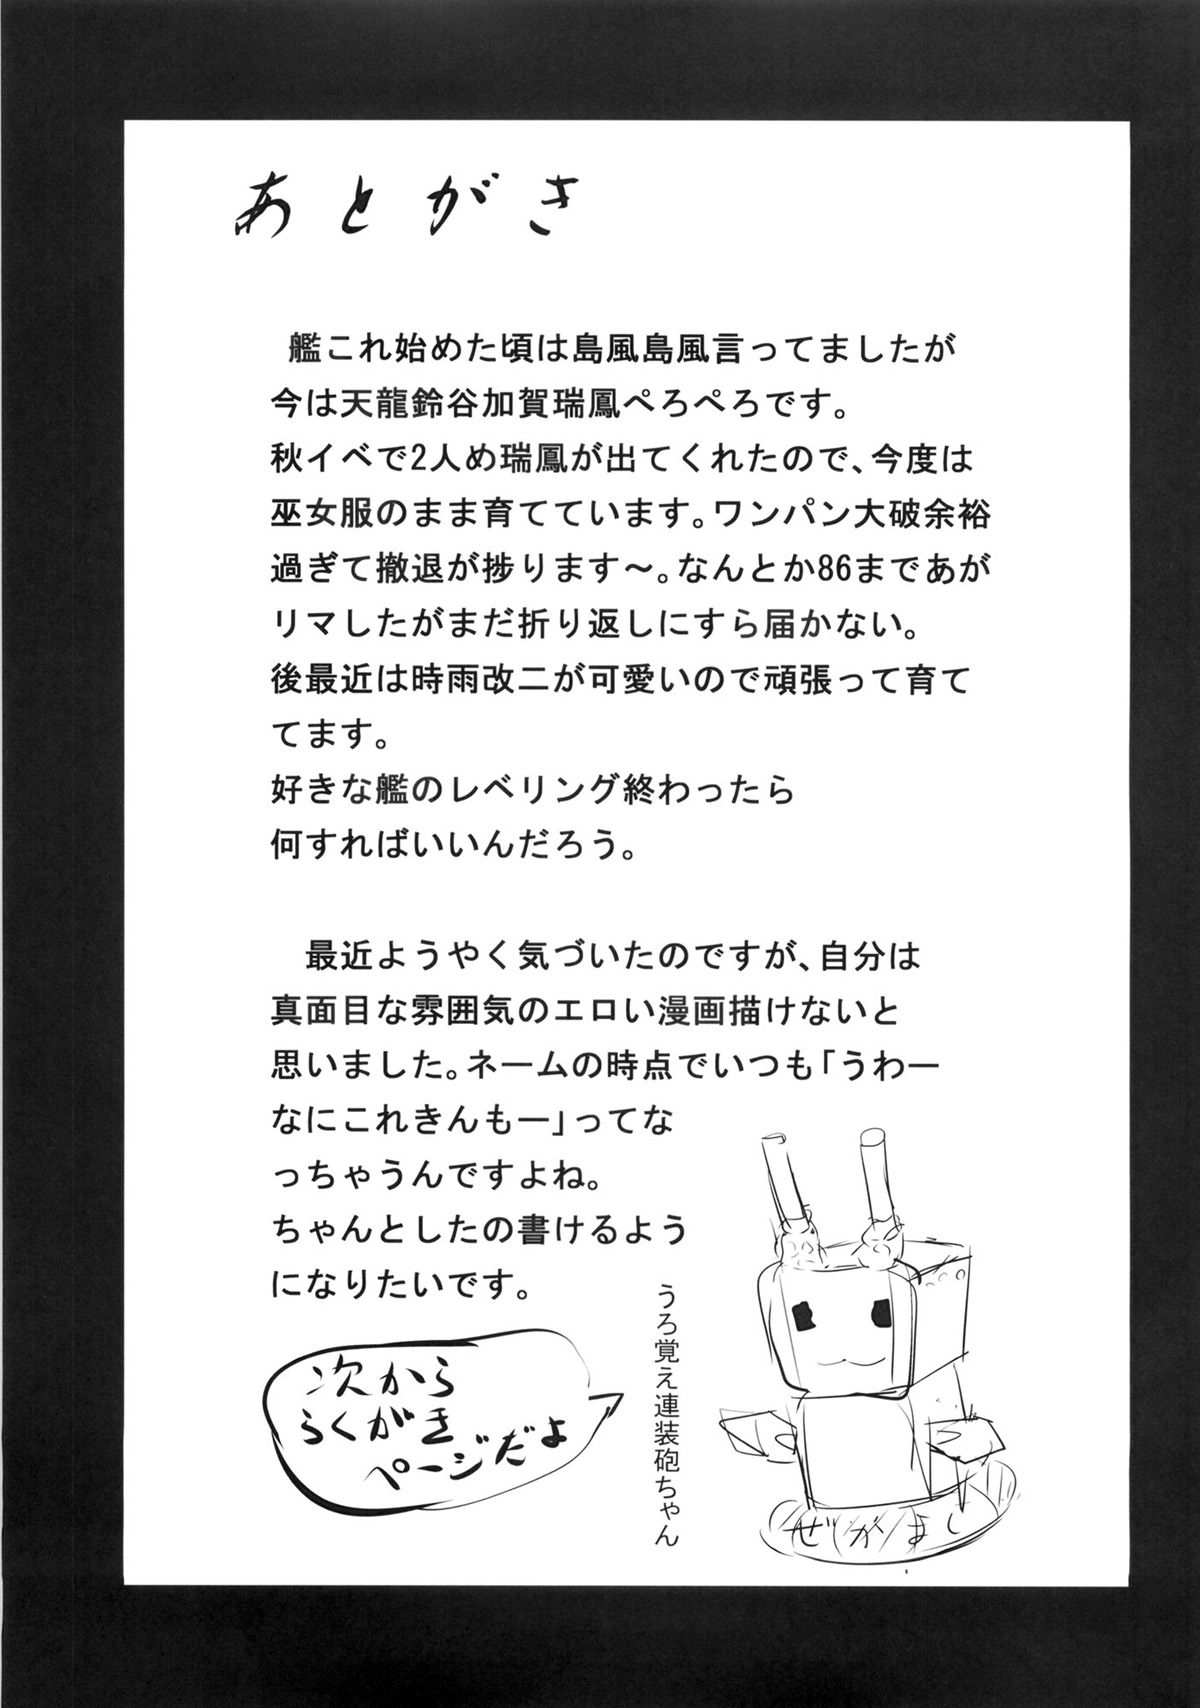 あとがき
艦これ始めた頃は島風島風言ってましたが
今は天龍鈴谷加賀瑞鳳ぺろぺろです。
秋イベで2人め瑞鳳が出てくれたので、今度は
巫女服のまま育てています。ワンパン大破余裕
過ぎて撤退が捗ります～。なんとか86まであが
リマしたがまだ折り返しにすら届かない。
後最近は時雨改二が可愛いので頑張って育て
てます。
好きな艦のレベリング終わったら
何すればいいんだろう。
最近ようやく気づいたのですが、自分は
真面目な雰囲気のエロい漫画描けないと
思いました。ネームの時点でいつも「うわー
なにこれきんもー」ってな
っちゃうんですよね。
ちゃんとしたの書けるよう
になりたいです。
次から
らくがき
ページだよ
うろ覚え連装砲ちゃん
ぜかまし